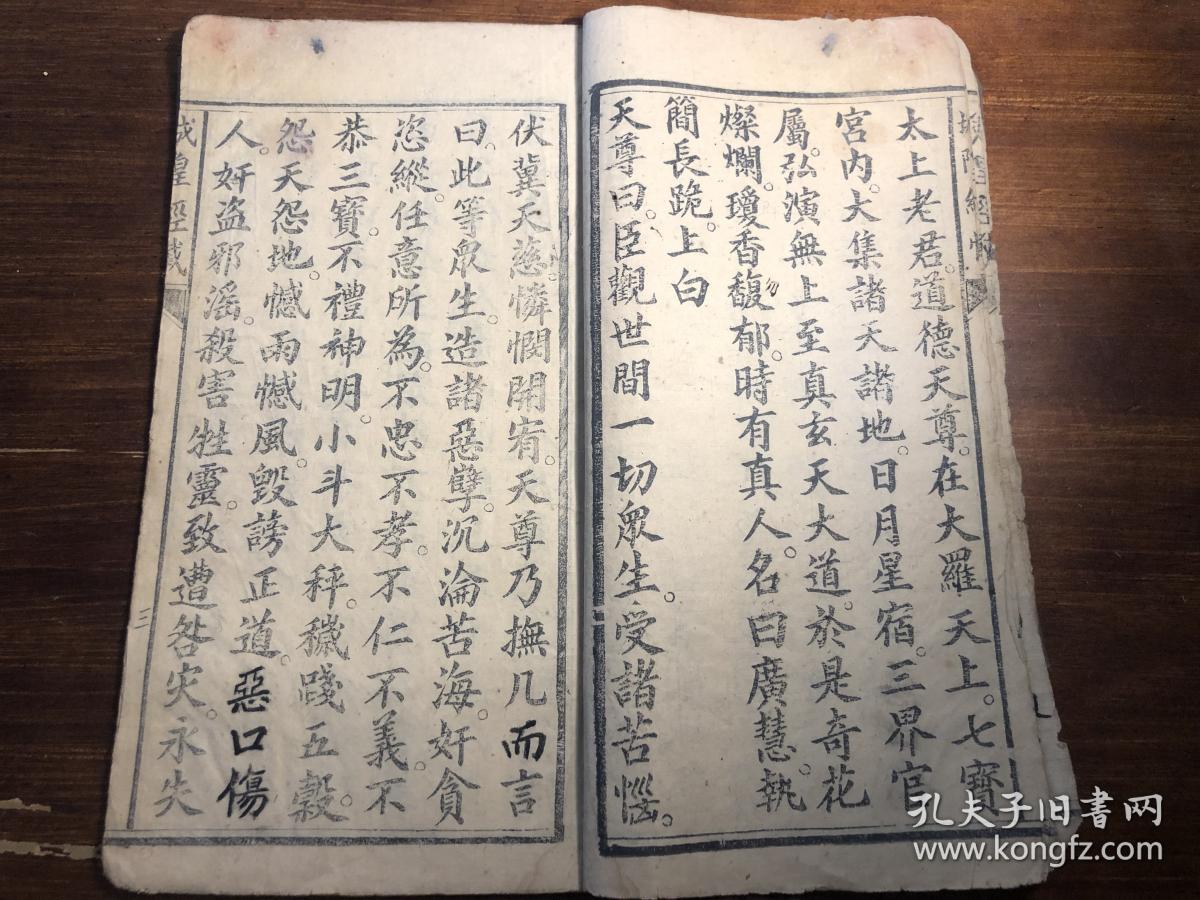 太上老君。道德天尊。在大羅天上。七寳
宮内。大集諸天諸地。日月星宿。三界官
屬。弘演無上至真玄天大道。於是奇花
燦爛。瓊香馥郁。時有真人。名曰廣慧。執
簡長跪。上白
天尊曰。臣觀世間一切眾生。受諸苦惱。
伏冀天慈。憐憫開宥。天尊乃撫几而言
曰。此等眾生。造諸惡孽。沉淪苦海。奸貪
恣縱。任意所為。不忠不孝。不仁不義。不
恭三寳。不禮神明。小斗大秤。穢踐五穀。
怨天怨地。憾雨憾風。毀謗正道。惡口傷
人。奸盗邪滛。殺害牲靈。致遭咎灾。永失
三
孔夫子旧书网
www.kongfz.com